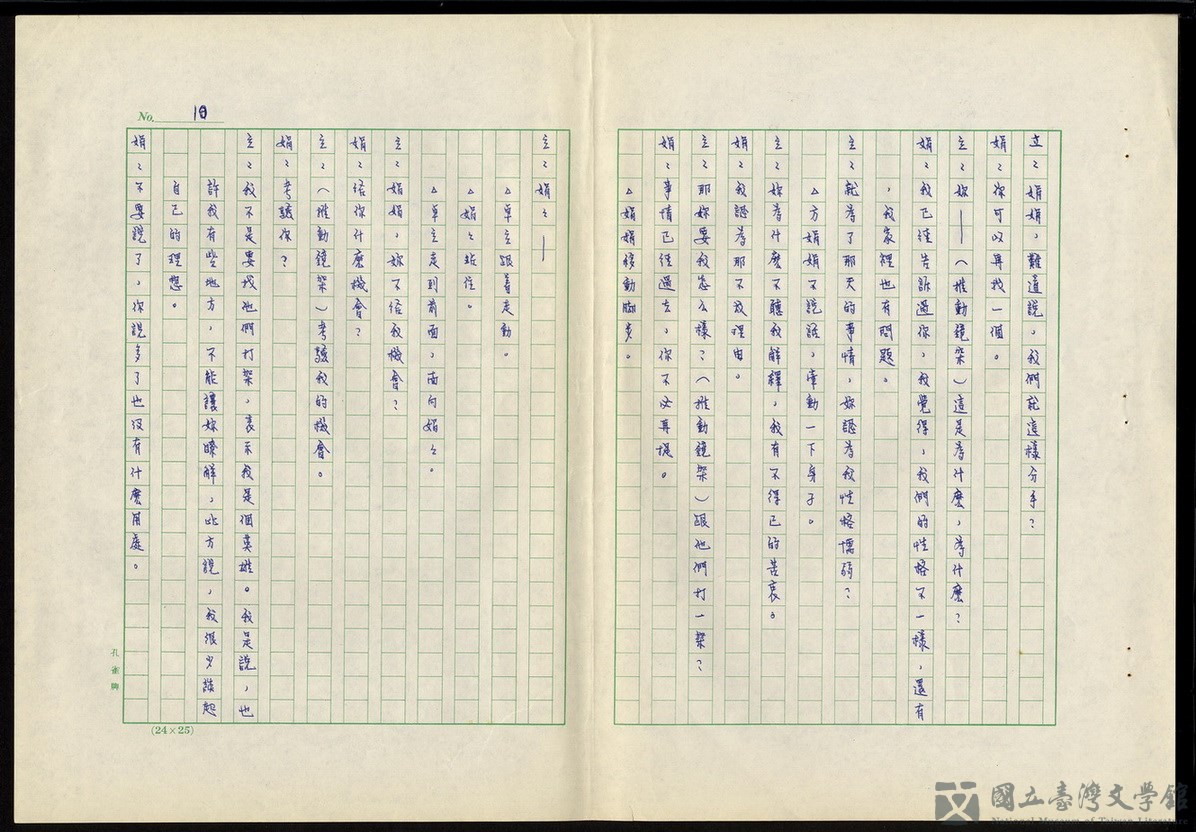 No. 18
立：娟娟，難道說，我們就這樣分手？
娟：你可以再找一個。
立：妳——（推動鏡架）這是為什麼，為什麼？
娟：我已經告訴過你，我覺得，我們的性格不一樣，還有
，我家裡也有問題。
立：就為了那天的事情，妳認為我性格懦弱？
△方娟娟不說話，牽動一下身子。
立：妳為什麼不聽我解釋，我有不得已的苦衷。
娟：我認為那不成理由。
立：那妳要我怎么樣？（推動鏡架）跟他們打一架？
娟：事情已經過去，你不必再提。
△娟娟移動腳步。
立：娟娟——
△卓立跟著走動。
△娟娟站住。
△卓立走到前面，面向娟娟。
立：娟娟，妳不給我機會？
娟：給你什麼機會？
立：（推動鏡架）考驗我的機會。
娟：考驗你？
立：我不是要找他們打架，表示我是個英雄。我是說，也
許我有些地方，不能讓妳瞭解，比方說，我很少談起
自己的理想。
娟：不要說了，你說多了也沒有什麼用處。
孔雀牌
(24×25)
國立臺灣文學館
National Museum of Taiwan Literature